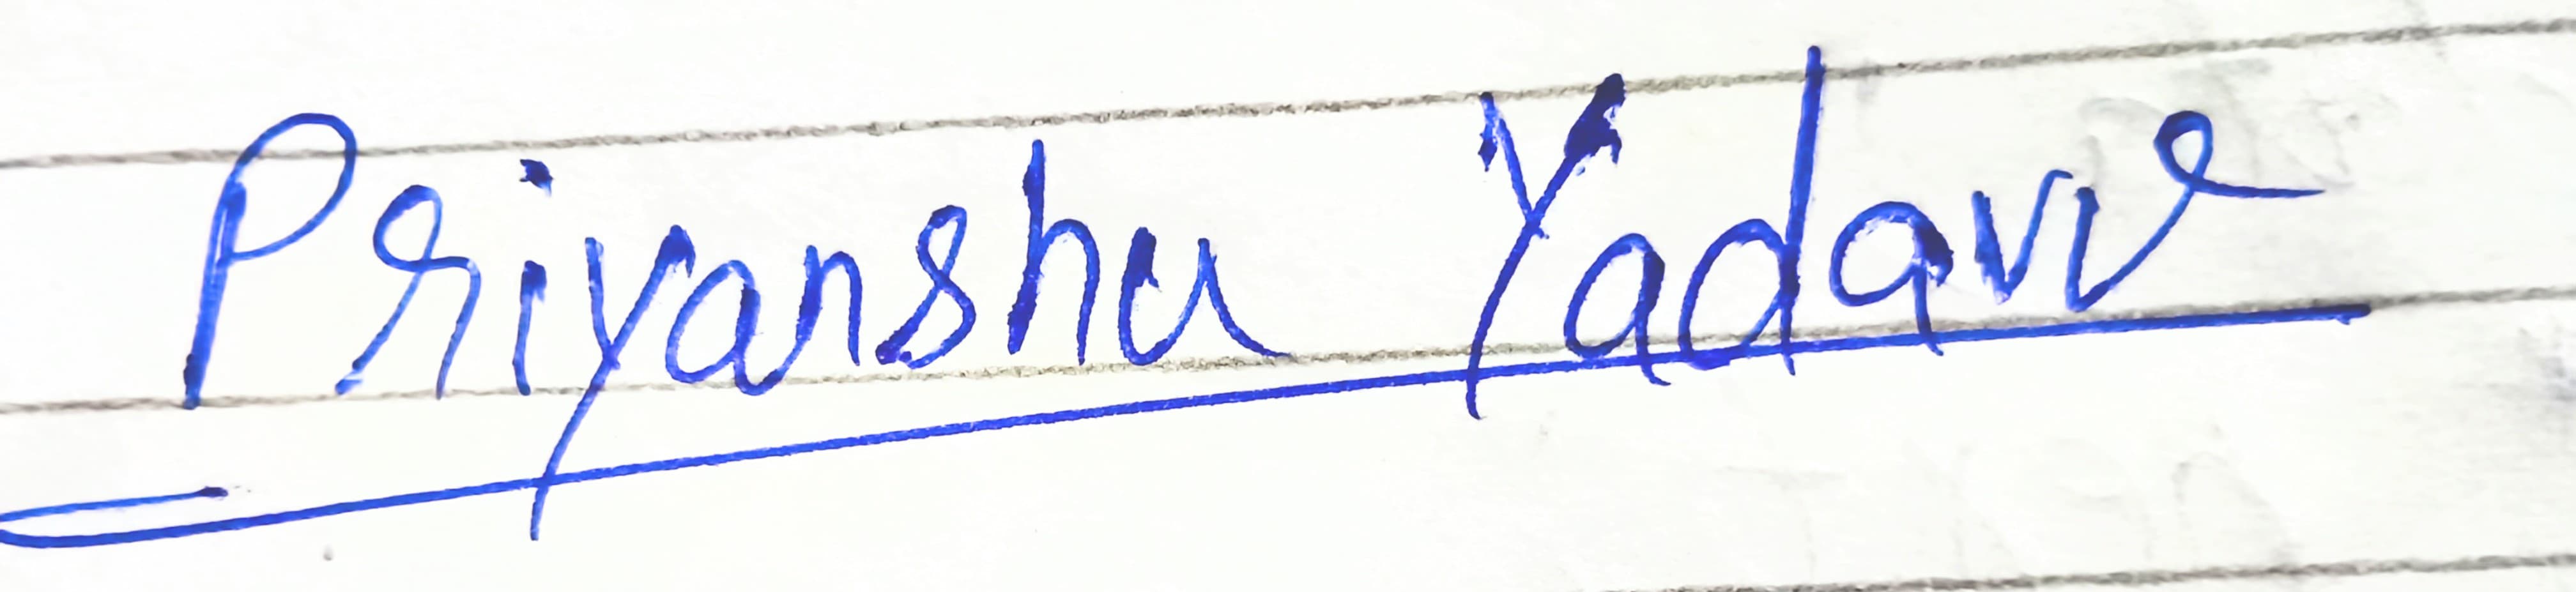 Priyanshu Yadavv